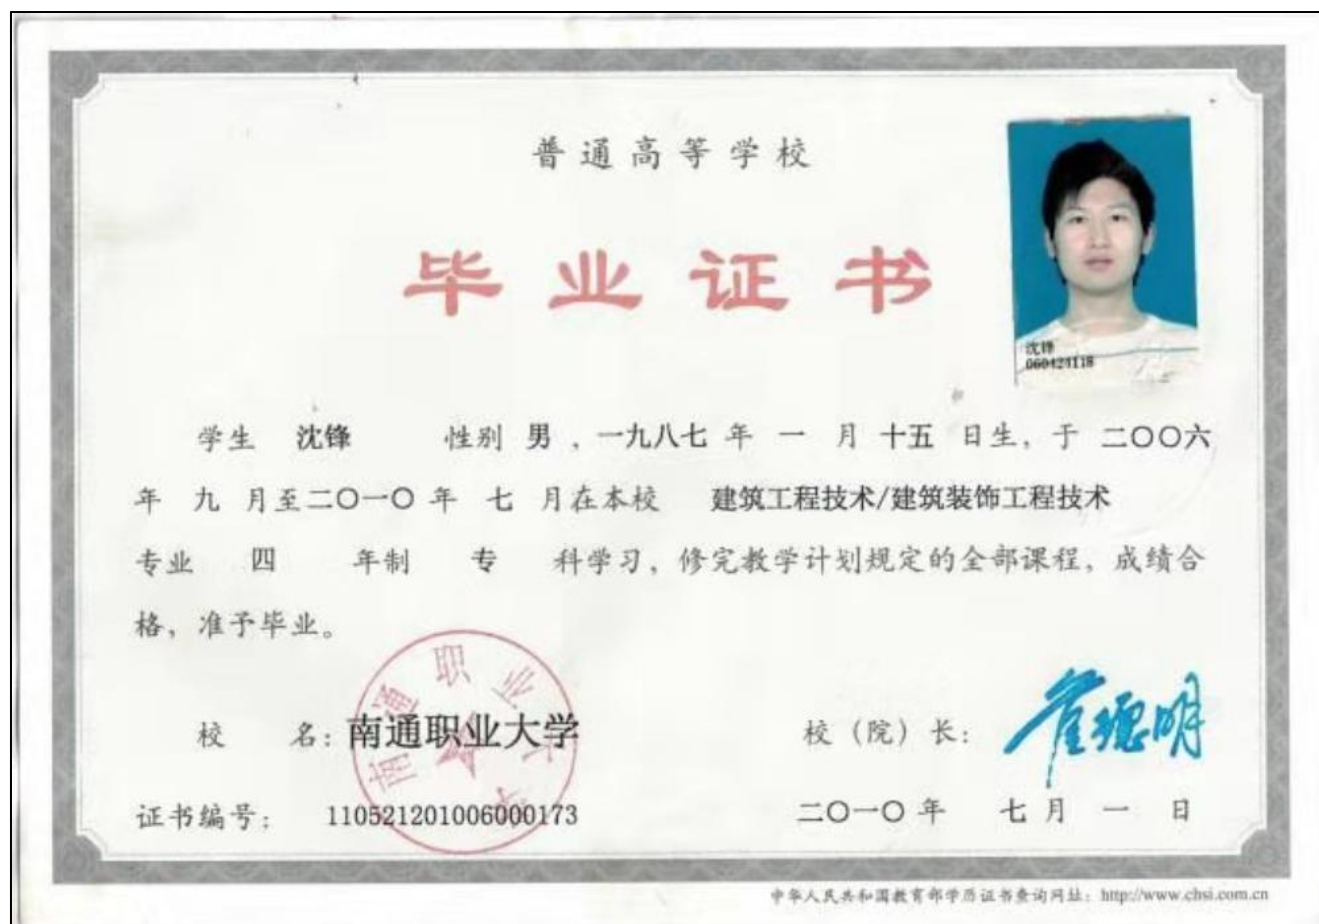 普通高等学校
毕业证书
沈锋
060424118
学生 沈锋 性别 男 ，一九八七 年 一 月 十五 日生，于 二〇〇六
年 九 月至二〇一〇 年 七 月在本校 建筑工程技术/建筑装饰工程技术
专业 四 年制 专 科学习，修完教学计划规定的全部课程，成绩合
格，准予毕业。
南通职业大学
校 名：南通职业大学 校（院）长：
证书编号： 110521201006000173 二〇一〇 年 七 月 一 日
中华人民共和国教育部学历证书查询网址：http://www.chsi.com.cn